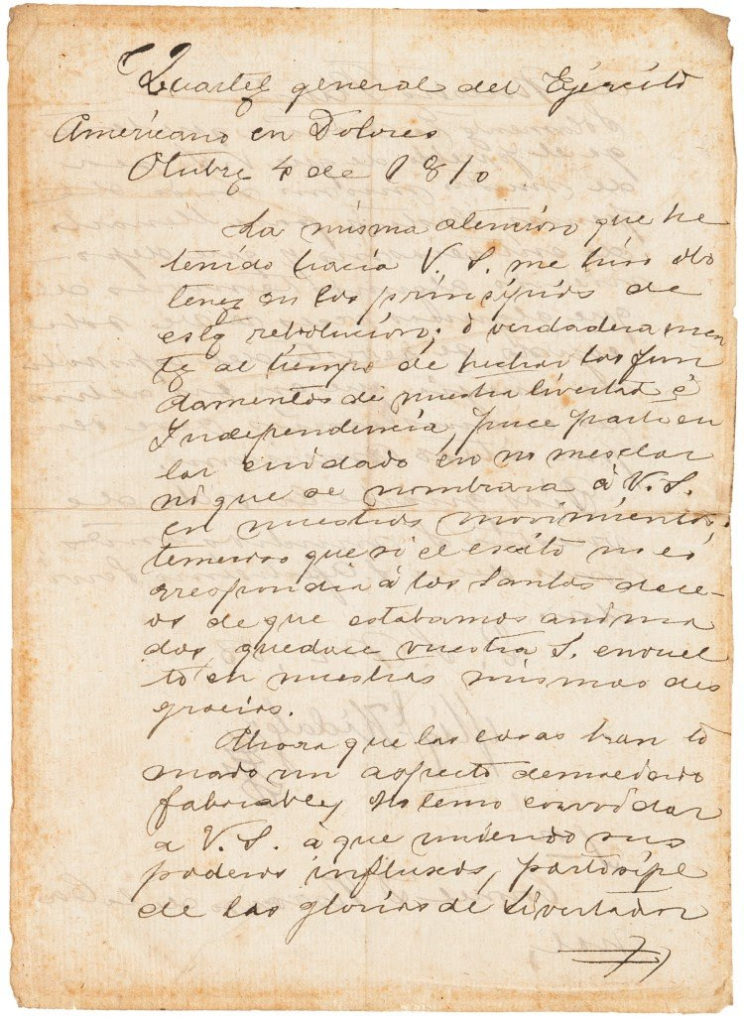 Quartel general del Ejército
Américano en Dolores
Otubre 4 de 1810
La misma atención que he
tenido hacia V. S. me hiso ob
tener en los prinsípios de
esta rebolución; ó verdadera men
te al tiempo de hechar los fun
damentos de nuestra livertad é
Independencia, puce parti cu
lar cuidado en no mesclar
ni que se nombrara á V. S.
en nuestros movimientos,
temeroso que si el escito no co
rrespondia á los Santos dece-
os de que estabamos anima
dos quedace vuestra S. envuel
to en nuestras mismas des
gracias.
Ahora que las cosas han to
mado un aspecto demaciado
faborable, No temo convidar
a V. S. á que uniendo sus
poderos influxos, partisípe
de las glorias de Livertador